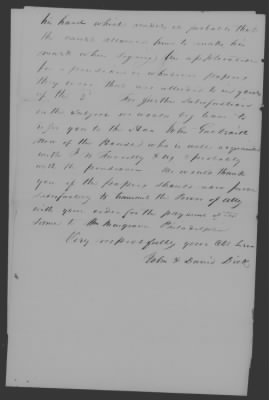 his hand which renders it probable that
the nurse allowed him to make his
mark when signing the application
for a pension or whatever papers
they were that are alluded to in yours
of the 2d For further satisfaction
on the subject we would beg leave to
refer you to the Hon John Galbraith
Mem of the House who is well acquainted
with & probably
with the pensioner We would thank
you if the papers should now prove
satisfactory to transmit the Power of Atty
with your order for the payment of the
same to Mr Musgrave Philadelphia
Very respectfully your Obt Servts
John & David Dick